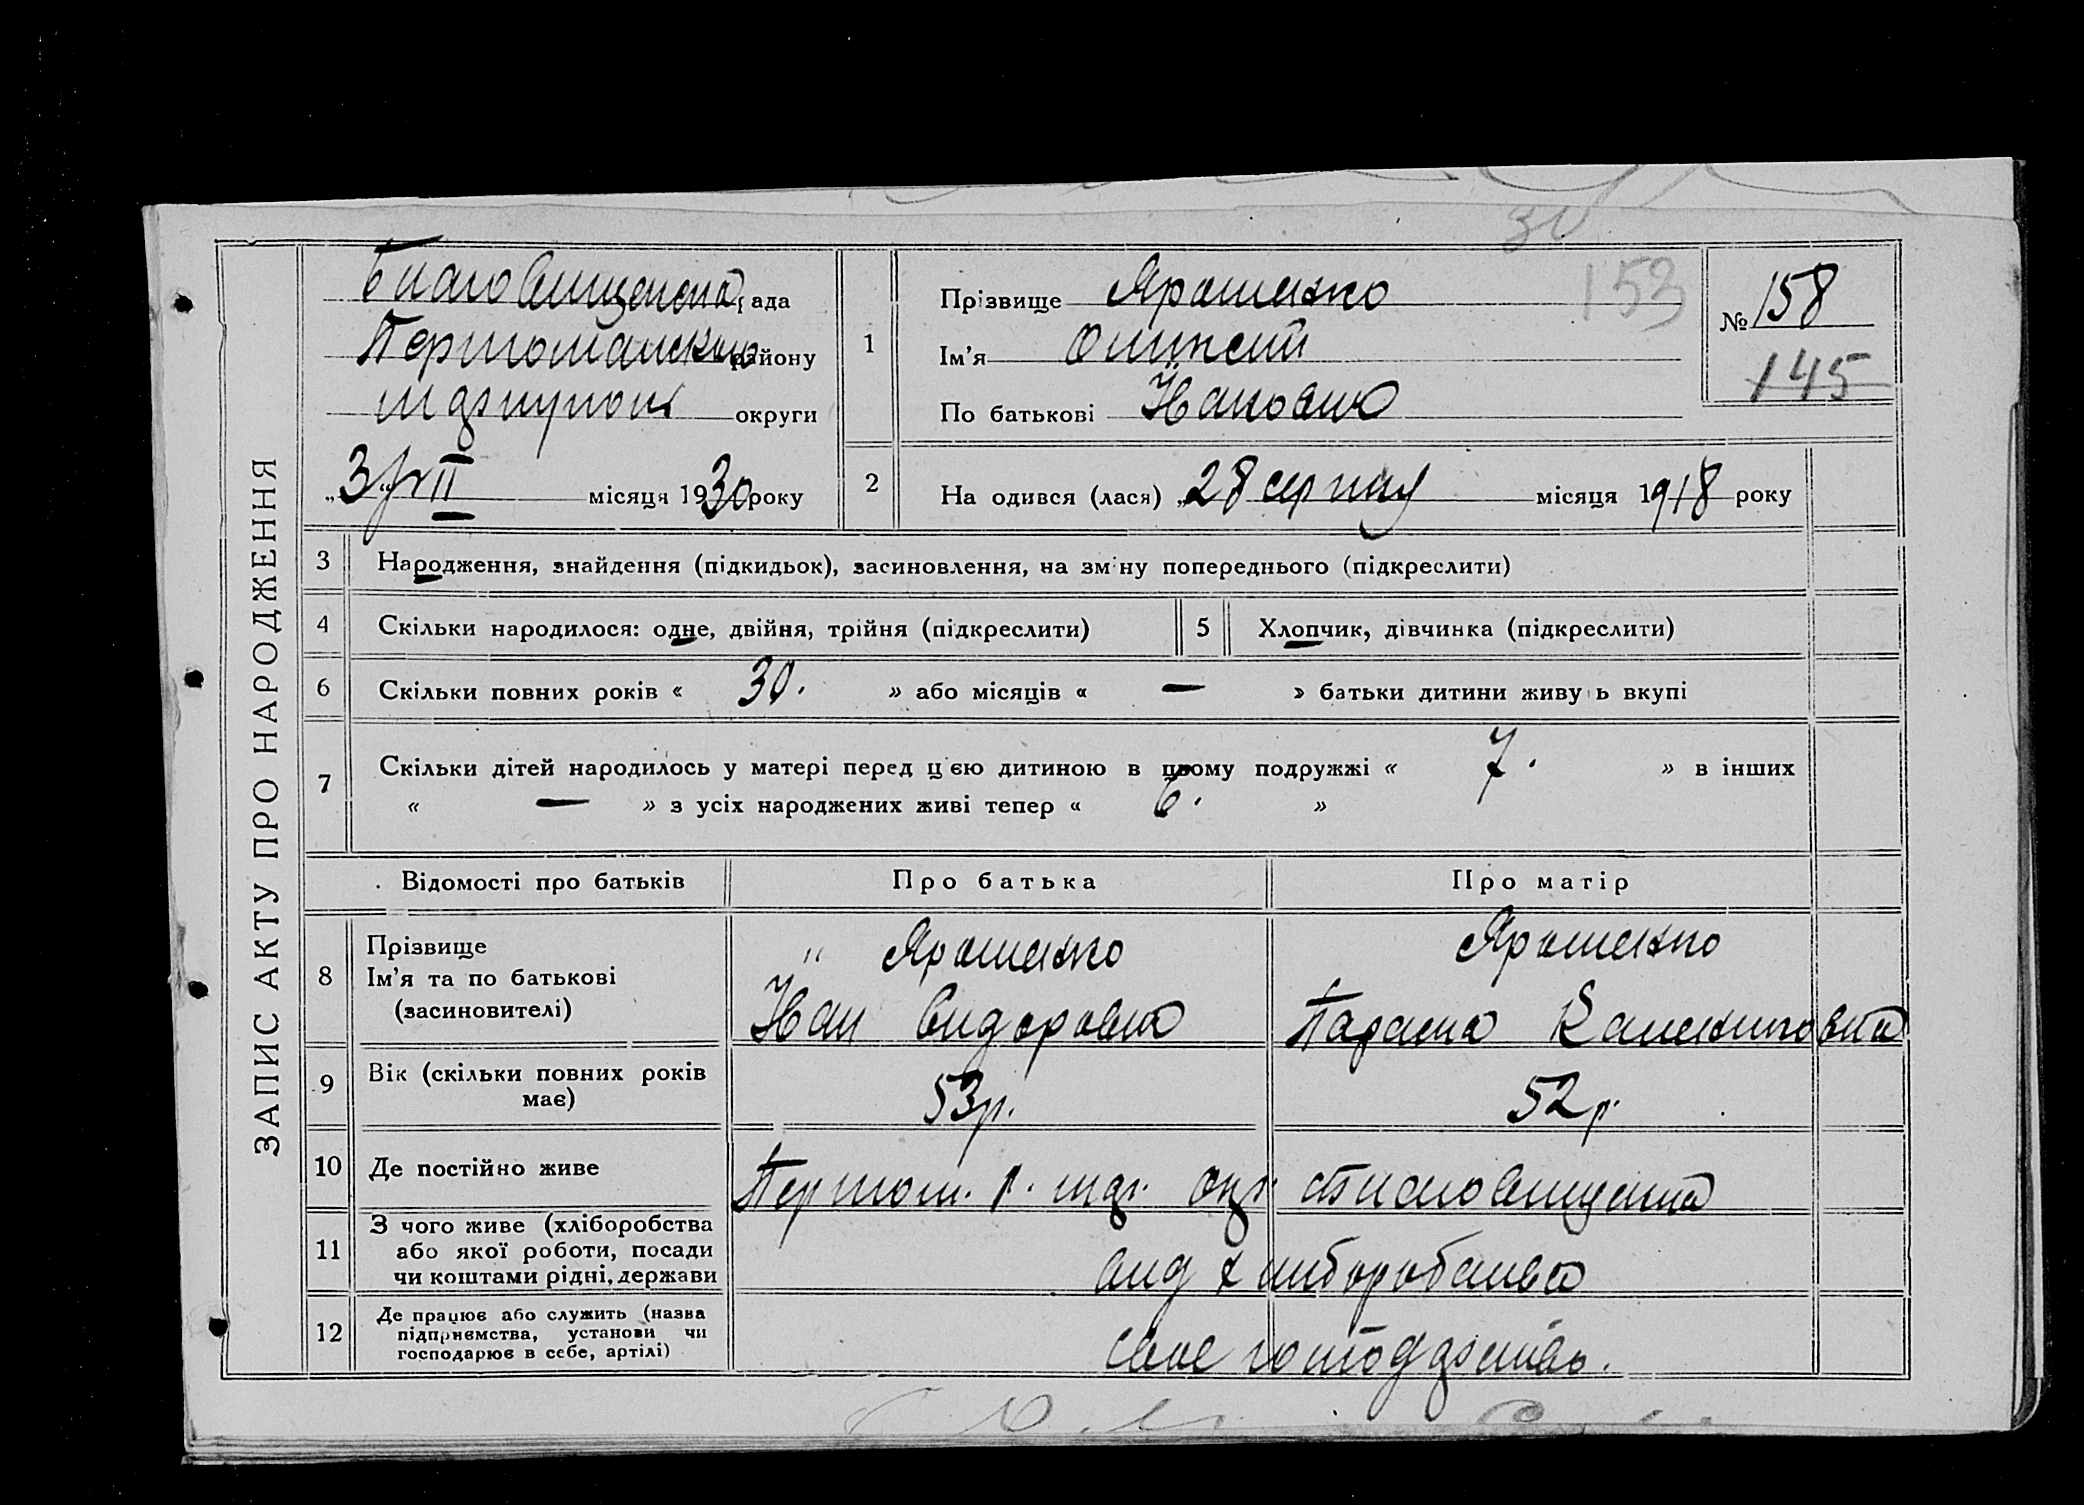 ЗАПИС АКТУ ПРО НАРОДЖЕННЯ
30
153
рада
району
округи
„3" VII місяця 1930 року
1
Прізвище Ярошенко
Ім'я
По батькові
№ 158
145
2
На одився (лася) „28 серпня місяця 1918 року
3
Народження, знайдення (підкидьок), засиновлення, на зм ну попереднього (підкреслити)
4
Скільки народилося: одне, двійня, трійня (підкреслити)
5
Хлопчик, дівчинка (підкреслити)
6
Скільки повних років « 30. » або місяців « — » батьки дитини живу ь вкупі
7
Скільки дітей народилось у матері перед цією дитиною в цьому подружжі « 7. » в інших
« — » з усіх народжених живі тепер « 6. »
Відомості про батьків
Про батька
Про матір
8
Прізвище
Ім'я та по батькові
(засиновителі)
Ярошенко
Іван Сидорович
Ярошенко
Параска
9
Вік (скільки повних років
має)
53 р.
52 р.
10
Де постійно живе
11
З чого живе (хліборобства
або якої роботи, посади
чи коштами рідні, держави
від хліборобства
12
Де працює або служить (назва
підприємства, установи чи
господарює в себе, артілі)
своє господарство.